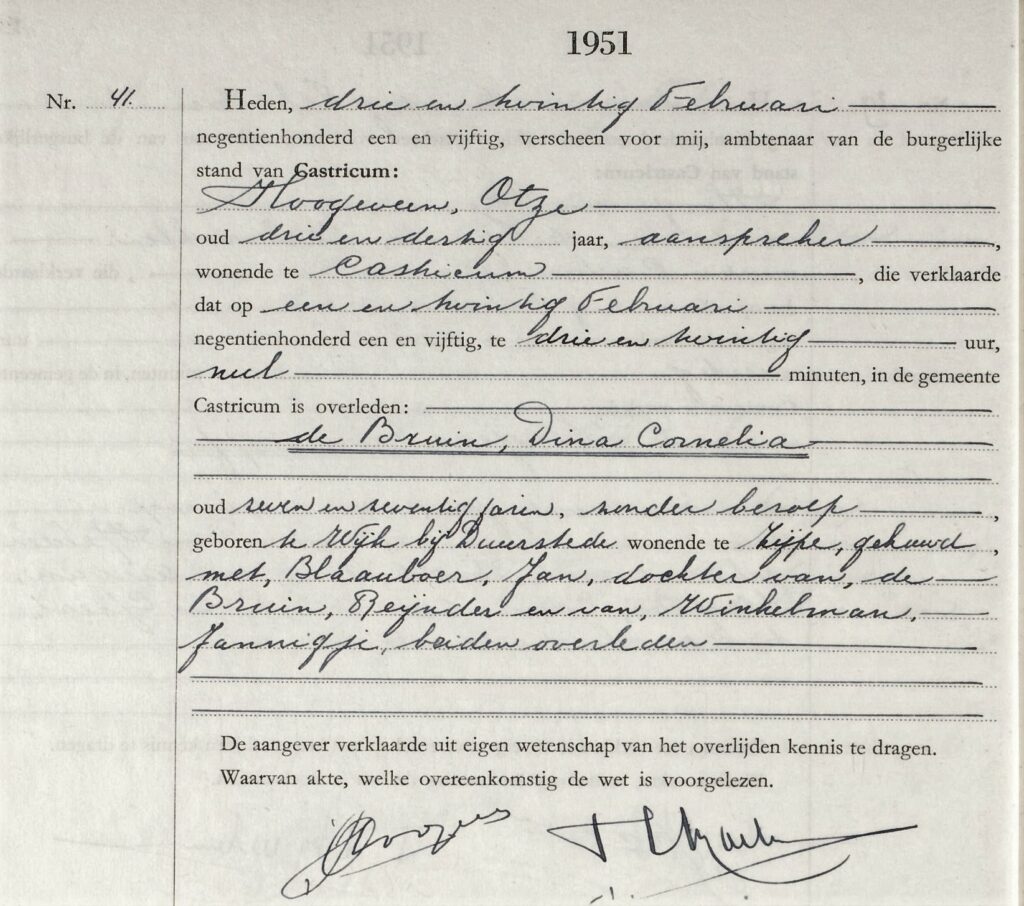 1951
Nr. 41.
Heden, drie en twintig Februari
negentienhonderd een en vijftig, verscheen voor mij, ambtenaar van de burgerlijke
stand van Castricum:
Hoogeveen, Otze
oud drie en dertig jaar, aanspreker,
wonende te Castricum, die verklaarde
dat op een en twintig Februari
negentienhonderd een en vijftig, te drie en twintig uur,
nul minuten, in de gemeente
Castricum is overleden:
de Bruin, Dina Cornelia
oud zeven en zeventig jaren, zonder beroep,
geboren te Wijk bij Duurstede wonende te Zijpe, gehuwd,
met, Blaauboer, Jan, dochter van, de
Bruin, Reijnder en van, Winkelman,
Jannigje, beiden overleden
De aangever verklaarde uit eigen wetenschap van het overlijden kennis te dragen.
Waarvan akte, welke overeenkomstig de wet is voorgelezen.